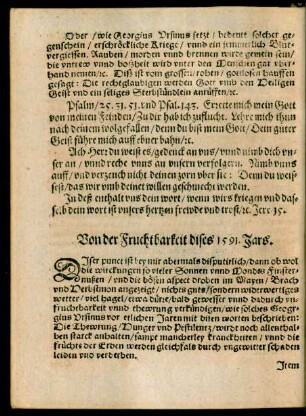 Oder / wie Georgius Vrsinus setzt / bedeut solcher ge-
genschein / erschröckliche Kriege / vnnd ein jämmerlich Blut-
vergiessen. Rauben / morden vnnd brennen wirdt gemein sein /
die vntrew vnnd boßheit wird vnter den Menschen gar vber-
hand nemen / ꝛc. Diß ist vom grossen / rohen / gotlosen hauffen
gesagt: Die rechtglaubigen werden Gott vmb den Heiligen
Geist vnd ein seliges Sterbstündlein anrüffen / ꝛc.
Psalm / 25. 31. 51. vnd Psal. 143. Errette mich mein Gott
von meinen Feinden / Zu dir hab ich zuflucht. Lehre mich thun
nach deinem wolgefallen / denn du bist mein Gott / Dein guter
Geist führe mich auff ebner bahn / ꝛc.
Ach Herr du weist es / gedenck an vns / vnnd nimb dich vn-
ser an / vnnd reche vnns an vnsern verfolgern. Nimb vnns
auff / vnd verzeuch nicht deinen zorn vber sie: Denn du weis-
sest / das wir vmb deinet willen geschmecht werden.
In deß enthalt vns dein wort / wenn wirs kriegen vnd das-
selb dein wort ist vnsers hertzen frewde vnd trost / ꝛc. Jere. 15.
Von der Fruchtbarkeit dises 1591. Jars.
Diser punct ist bey mir abermals disputirlich / dann ob wol
die wirckungen so vieler Sonnen vnnd Monds Finster-
nussen / vnd die bösen aspect droben im Mayen / Brach
vnd Derbstmon angezeigt / nichts guts / sondern widerwertiges
wetter / viel hagel / etwa dürre / bald gewesser vnnd dadurch vn-
fruchtbarkeit vnnd thewrung verkündigen / wie solches Geor-
gius Vrsinus vor etlichen Jaren mit diten worten beschrieben:
Die Thewrung / Hunger vnd Pestilentz / wirdt noch allenthal-
ben starck anhalten / sampt mancherley kranckheiten / vnnd die
früchte der Erden werden gleichfals durch vngewitter schaden
leiden vnd verderben.
Item